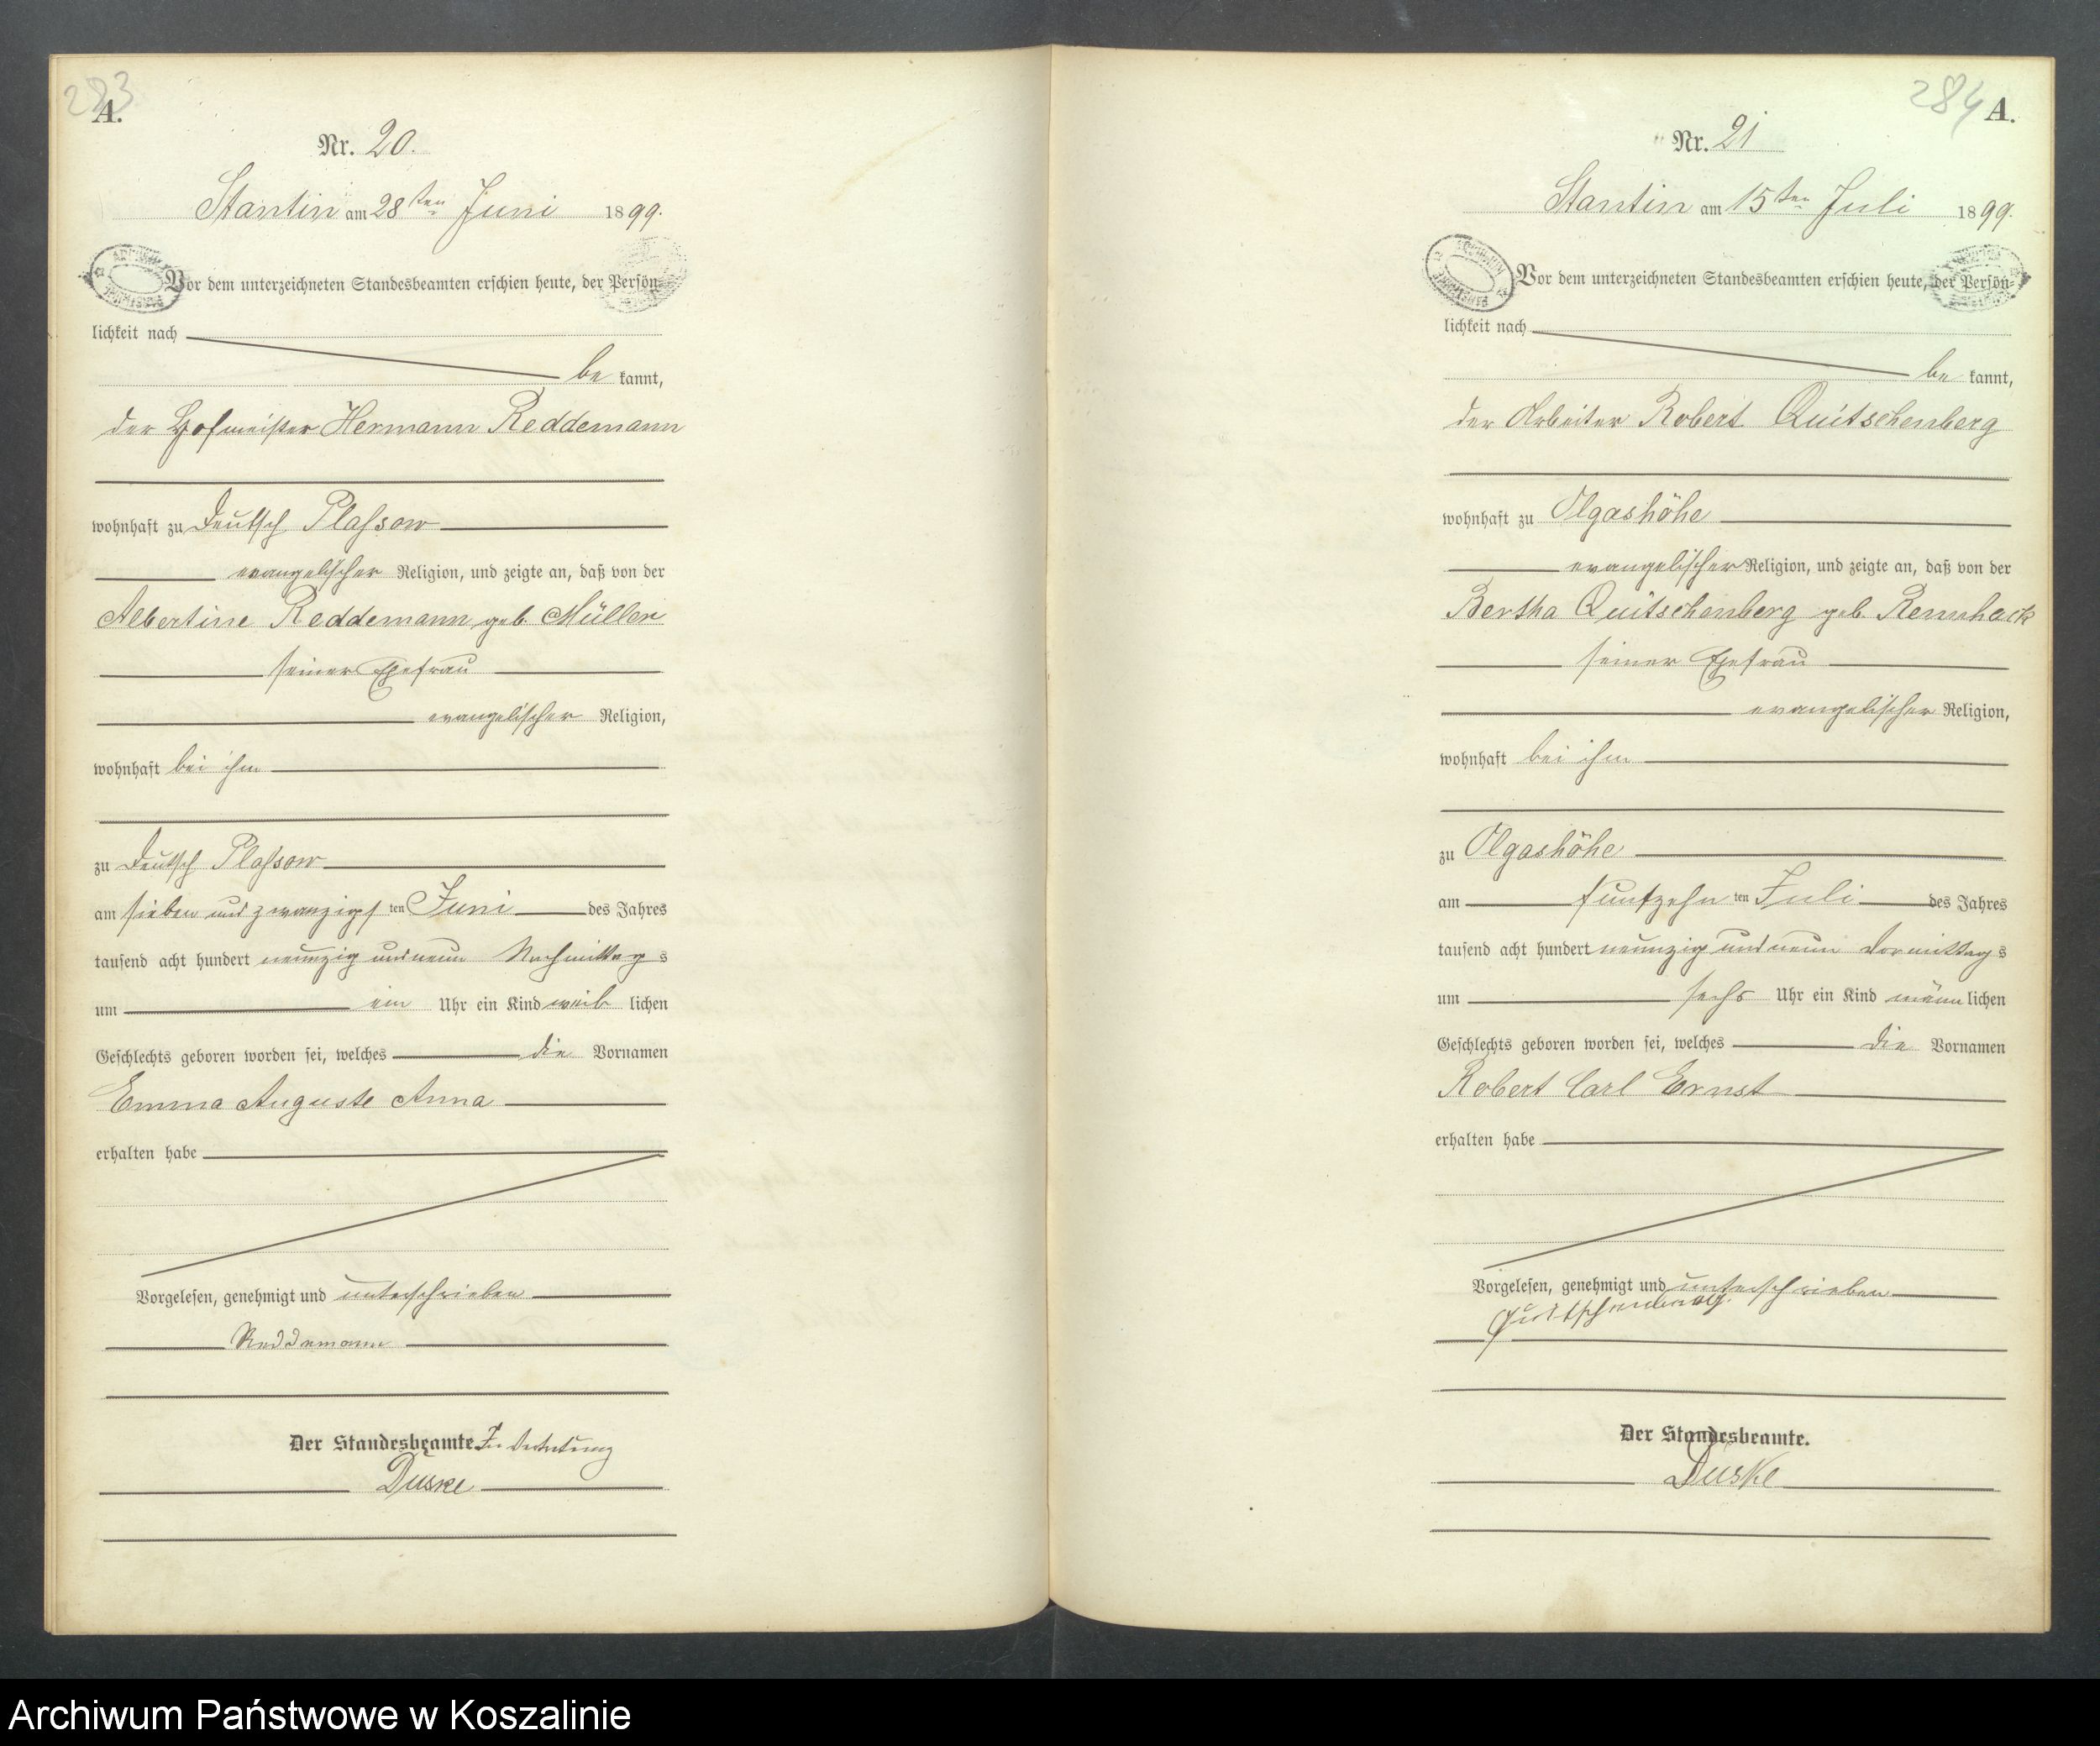 283
A.
Nr. 20.
Stantin am 28ten Juni 1899.
Vor dem unterzeichneten Standesbeamten erschien heute, der Persön-
lichkeit nach
be kannt,
der Hofmeister Hermann Reddemann
wohnhaft zu Deutsch Plassow
evangelischer Religion, und zeigte an, daß von der
Albertine Reddemann geb. Müller
seiner Ehefrau
evangelischer Religion,
wohnhaft bei ihm
zu Deutsch Plassow
am sieben und zwanzigs ten Juni des Jahres
tausend acht hundert neunzig und neun Nachmittag s
um ein Uhr ein Kind weib lichen
Geschlechts geboren worden sei, welches die Vornamen
Emma Auguste Anna
erhalten habe
Vorgelesen, genehmigt und unterschrieben
Reddemann
Der Standesbeamte. In Vertretung
Duske
284
A.
Nr. 21
Stantin am 15ten Juli 1899.
Vor dem unterzeichneten Standesbeamten erschien heute, der Persön-
lichkeit nach
be kannt,
der Arbeiter Robert Quitschenberg
wohnhaft zu Olgashöhe
evangelischer Religion, und zeigte an, daß von der
Bertha Quitschenberg geb. Rennhack
seiner Ehefrau
evangelischer Religion,
wohnhaft bei ihm
zu Olgashöhe
am funfzehn ten Juli des Jahres
tausend acht hundert neunzig und neun Vormittag s
um sechs Uhr ein Kind männ lichen
Geschlechts geboren worden sei, welches die Vornamen
Robert Carl Ernst
erhalten habe
Vorgelesen, genehmigt und unterschrieben
Quitschenberg.
Der Standesbeamte.
Duske
Archiwum Państwowe w Koszalinie